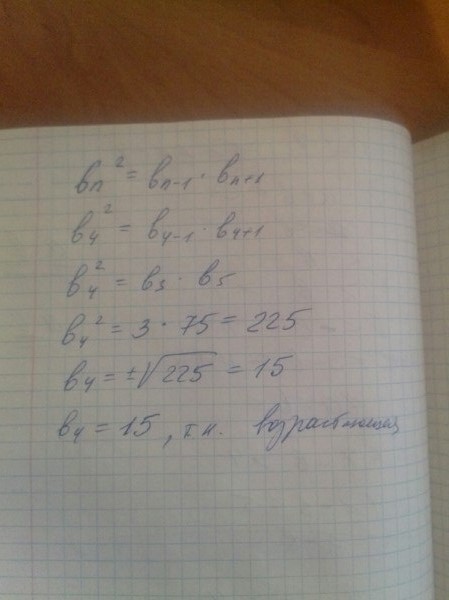 bₙ² = bₙ₋₁ · bₙ₊₁
b₄² = b₄₋₁ · b₄₊₁
b₄² = b₃ · b₅
b₄² = 3 · 75 = 225
b₄ = ±√225 = 15
b₄ = 15, т.к. возрастающая